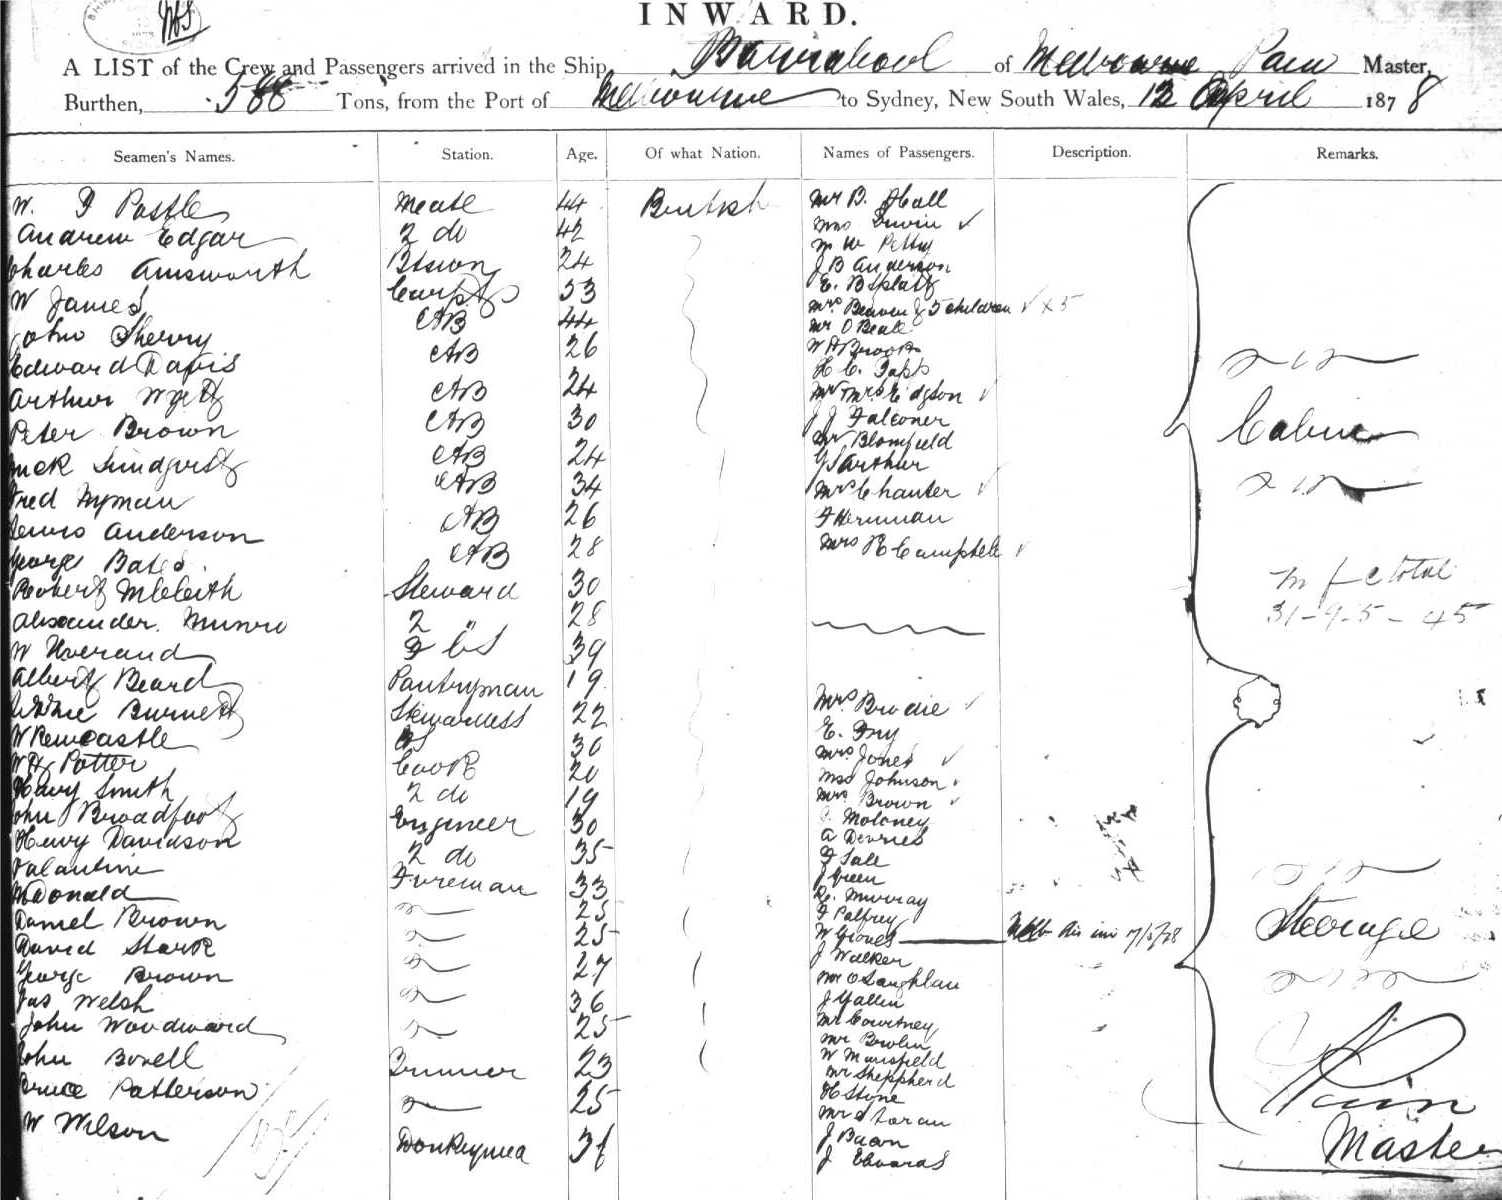 INWARD.
A LIST of the Crew and Passengers arrived in the Ship Barrabool of Melbourne Pain Master,
Burthen, 588 Tons, from the Port of Melbourne to Sydney, New South Wales, 12 April 1878
Seamen's Names. Station. Age. Of what Nation. Names of Passengers. Description. Remarks.
W. F Postle Mate 44 British
Andrew Edgar 2 do 42
Charles Ainsworth 24
W James Carptr 53
John Sherry AB 44
Edward Davis AB 26
Arthur Wyett AB 24
Peter Brown AB 30
AB 24
Fred Nyman AB 34
Lewis Anderson AB 26
George Bates AB 28
Robert McCleith Steward 30
Alexander Munro 2 " 28
W 39
Albert Beard Pantryman 19
Burnett Stewardess 22
W Newcastle 30
W H Potter Cook 20
Harry Smith 2 do 19
John Broadfoot Engineer 30
Henry Davidson 2 do 35
Valantine Fireman 33
McDonald 25
Daniel Brown 25
David Stark 27
George Brown 36
Jas Welsh 25
John Woodward
John Bovell Trimmer 23
Bruce Patterson 25
W Wilson Donkeyman
Mr B. Hall
Mrs Irwin
W Petty
J B Anderson
E. B Splatt
Mrs Beaven & 5 children x 5
Mr O Beale
W H Brooks
H C. Papps
Mr Mrs Eidgson
J J Falconer
Mr Blomfield
G S Arthur
Mrs Chanter
F Herrman
Mrs R Campbell
Mrs Brodie
E. Fry
Mrs Jones
Mrs Johnson
Mrs Brown
C. Moloney
A Devries
F Sale
J Green
R. Murray
F Palfrey
W Groves 7/5/78
J Walker
Mr O'Laughlan
J Gallin
Mr Courtney
Mr Bowlin
W Mansfield
Mr Sheppherd
H Stone
Mr Horan
J Bacon
J Edwards
Cabin
m f c total
31-9-5-45
Steerage
Pain
Master